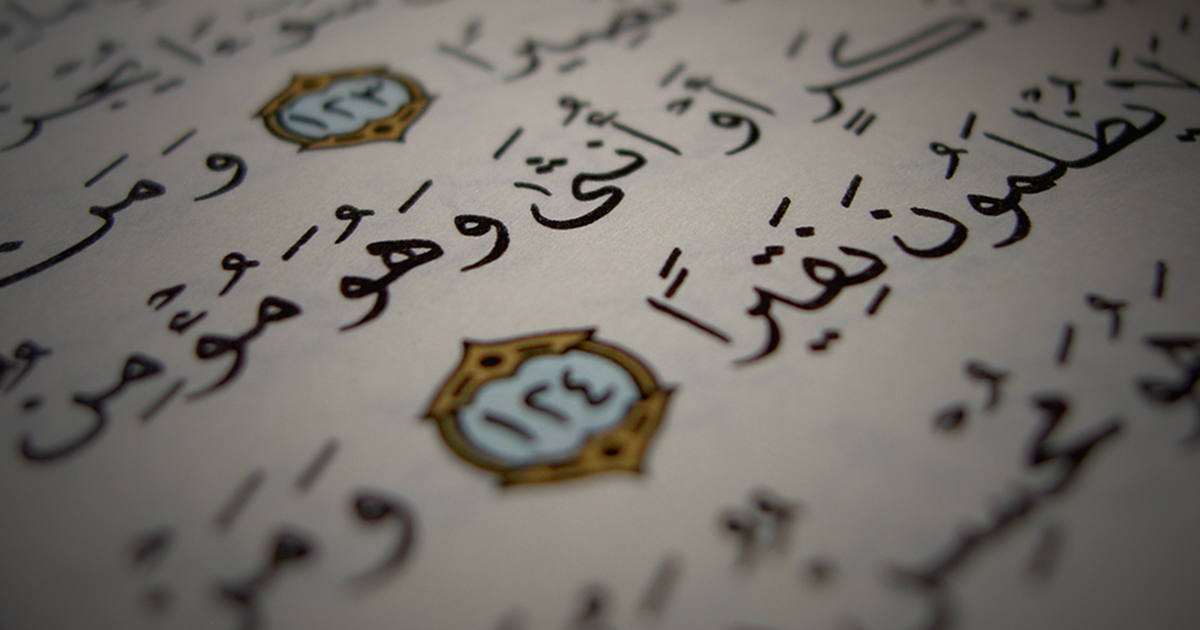 سُوٓءًا يُجْزَ
نَصِيرًا ١٢٣ وَمَن
ذَكَرٍ أَوْ أُنثَىٰ وَهُوَ مُؤْمِنٌ
لَا يُظْلَمُونَ نَقِيرًا ١٢٤ وَمَنْ
هُوَ مُحْسِنٌ